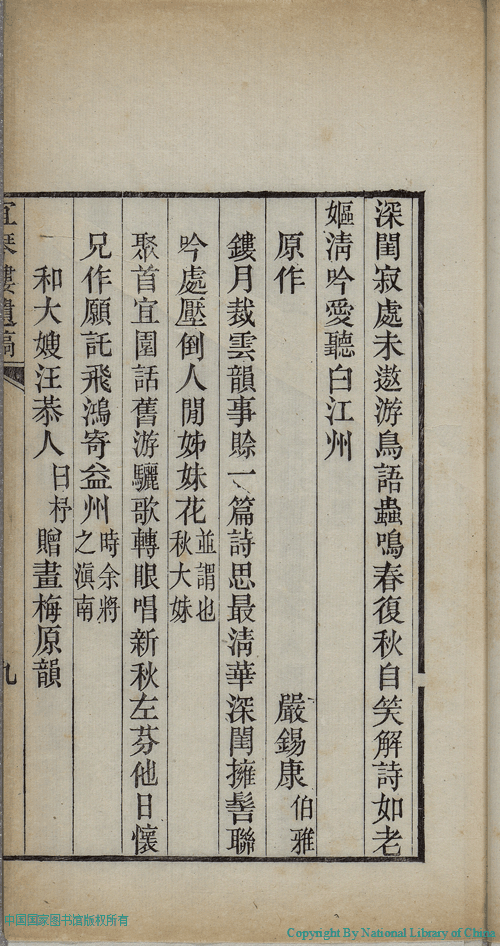 深閨寂處未遨游鳥語蟲鳴春復秋自笑解詩如老
嫗淸吟愛聽白江州
原作 嚴錫康 伯雅
鏤月裁雲韻事賒一篇詩思最淸華深閨擁髻聯
吟處壓倒人閒姊妹花 並謂也秋大妹
聚首宜園話舊游驪歌轉眼唱新秋左芬他日懷
兄作願託飛鴻寄益州 時余將之滇南
和大嫂汪恭人曰杼贈畫梅原韻
宜琴樓遺稿 九
中国国家图书馆版权所有
Copyright By National Library of China